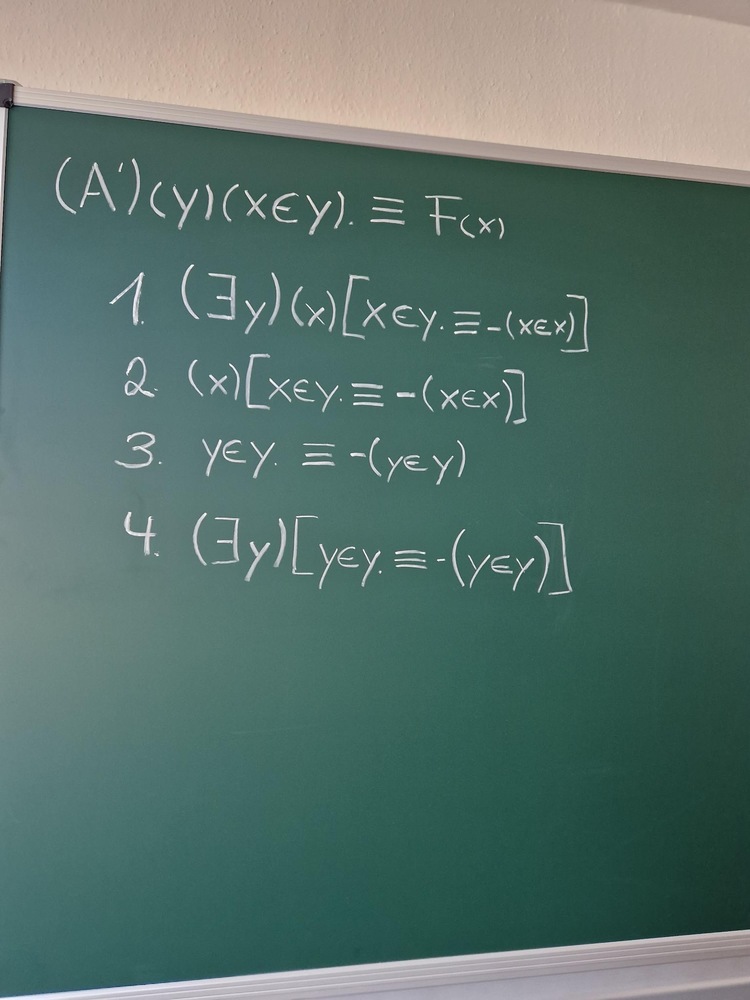 (A')(y)(x∈y). ≡ F(x)
1. (∃y)(x)[x∈y. ≡ -(x∈x)]
2. (x)[x∈y. ≡ -(x∈x)]
3. y∈y. ≡ -(y∈y)
4. (∃y)[y∈y. ≡ -(y∈y)]